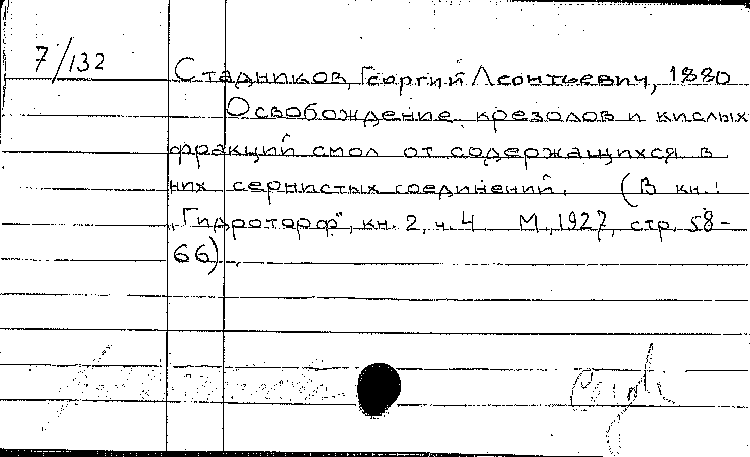 7/132
Стадников, Георгий Леонтьевич, 1880
Освобождение крезолов и кислых
фракций смол от содержащихся в
них сернистых соединений. (В кн.:
"Гидроторф", кн. 2, ч. 4 М., 1927, стр. 58-
66).